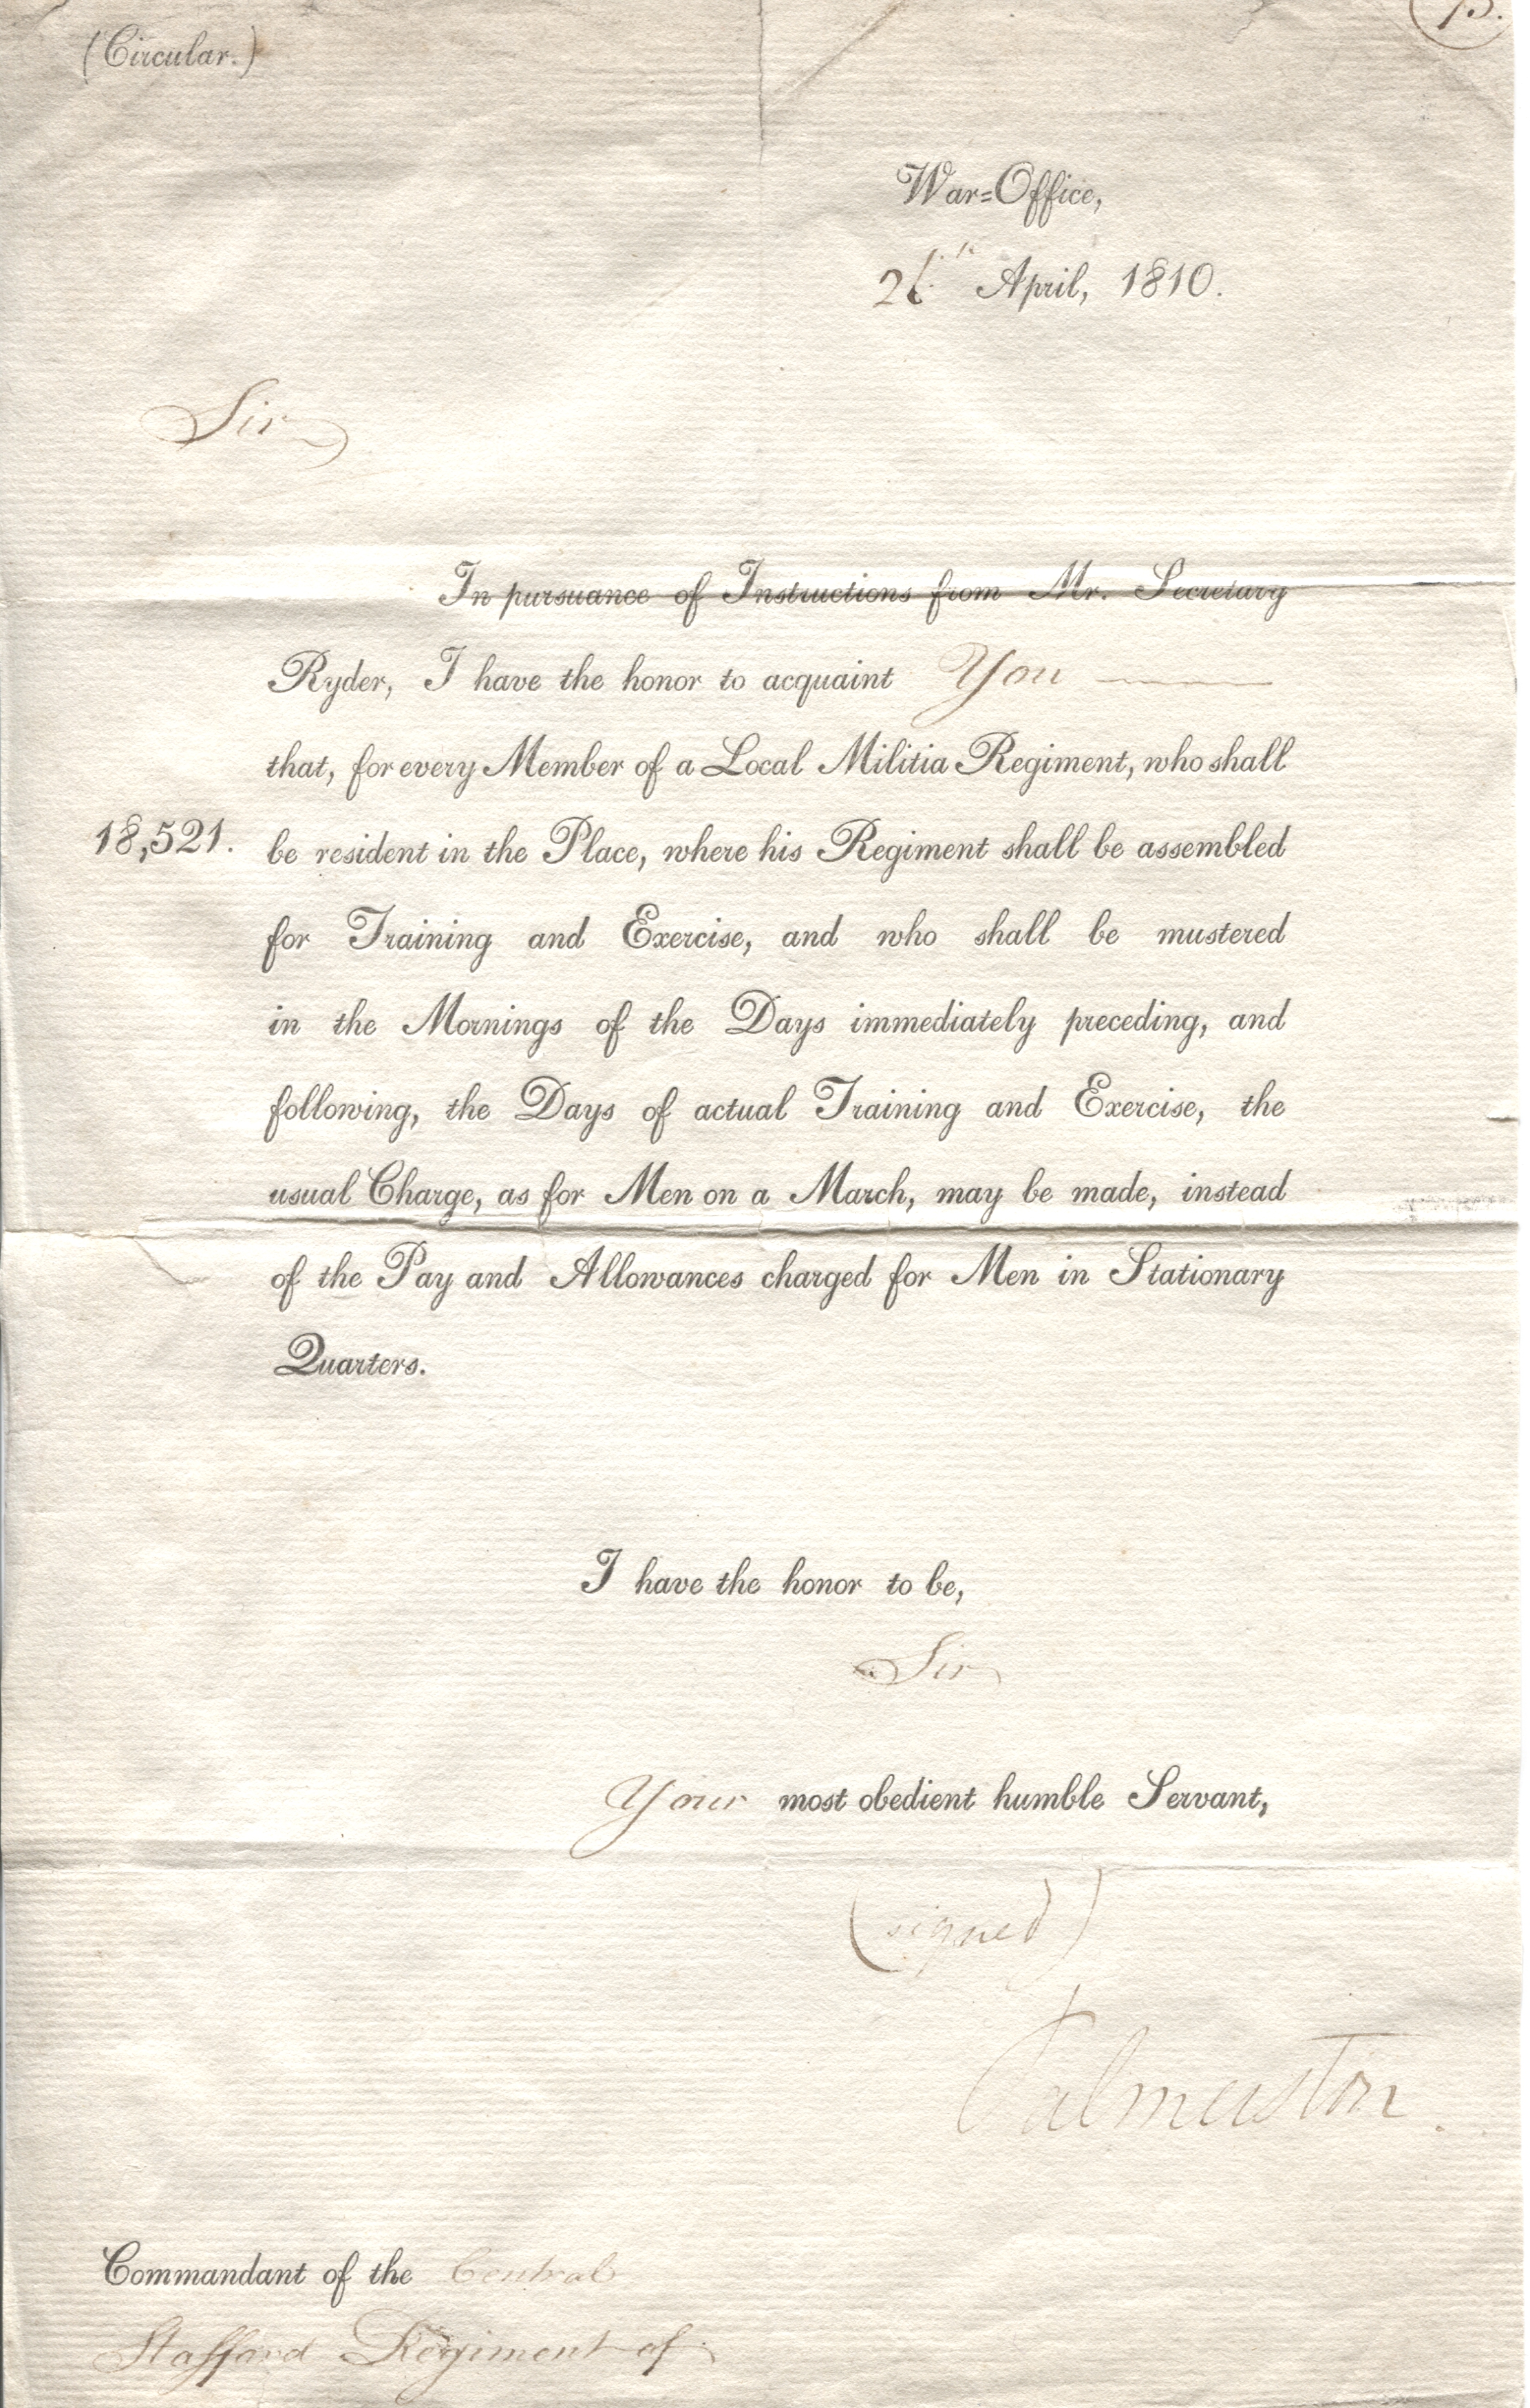 (Circular.)
War=Office,
26th April, 1810.
Sir
In pursuance of Instructions from Mr. Secretary
Ryder, I have the honor to acquaint You
that, for every Member of a Local Militia Regiment, who shall
18,521. be resident in the Place, where his Regiment shall be assembled
for Training and Exercise, and who shall be mustered
in the Mornings of the Days immediately preceding, and
following, the Days of actual Training and Exercise, the
usual Charge, as for Men on a March, may be made, instead
of the Pay and Allowances charged for Men in Stationary
Quarters.
I have the honor to be,
Sir
Your most obedient humble Servant,
(signed)
Palmerston.
Commandant of the Central
Stafford Regiment of